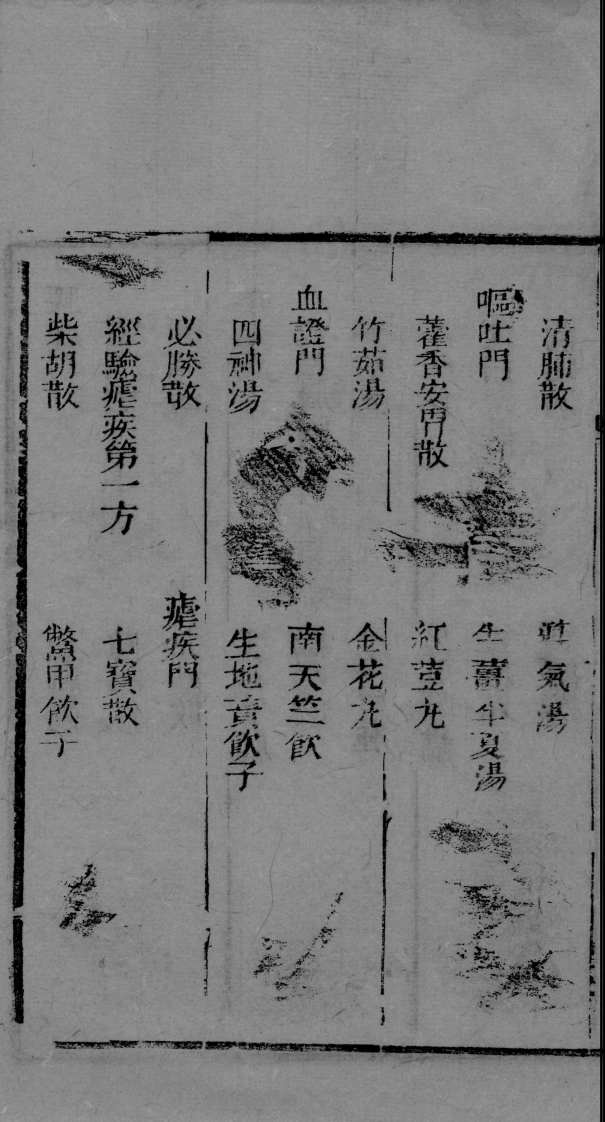 清肺散　氣湯
嘔吐門　生薑半夏湯
藿香安胃散　紅荳丸
竹茹湯　金花丸
血證門　南天竺飲
四神湯　生地黃飲子
必勝散　瘧疾門
經驗瘧疾第一方　七寶散
柴胡散　鱉甲飲子